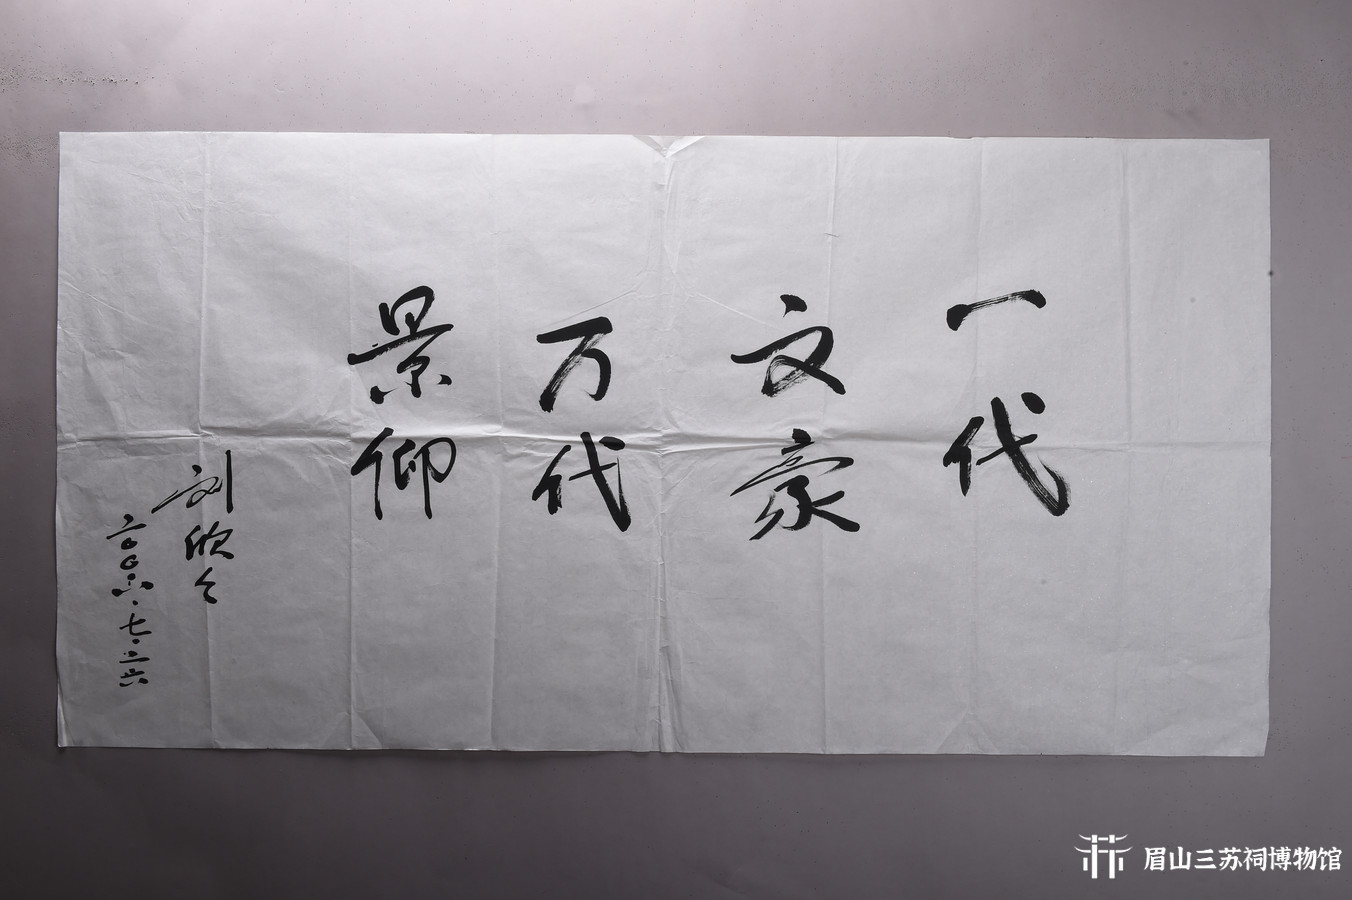 一代
文豪
万代
景仰
刘欣
二〇〇六.七.二六
眉山三苏祠博物馆